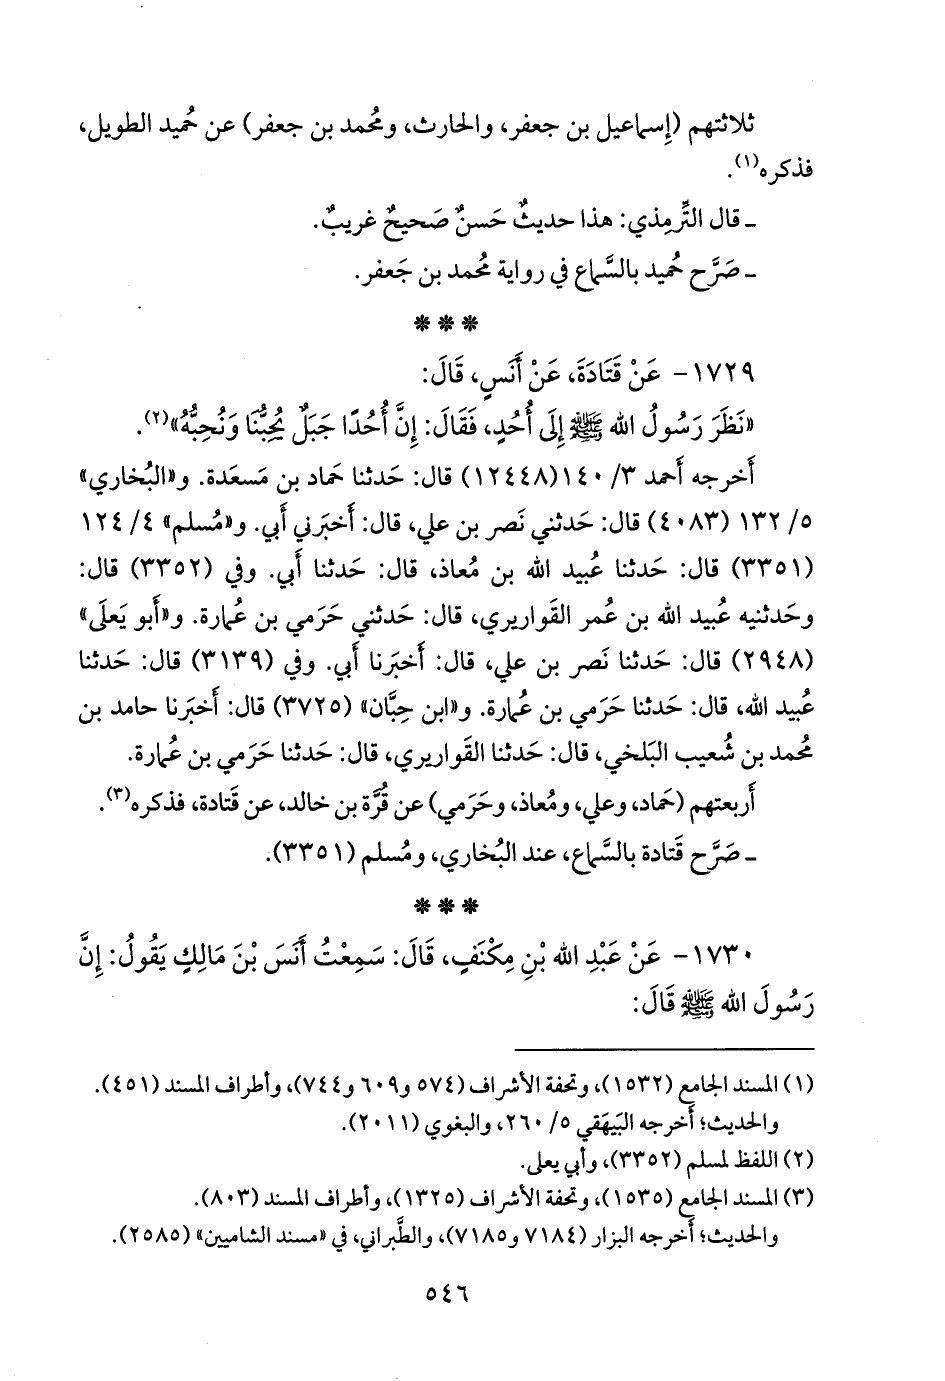 ثلاثتهم (إسماعيل بن جعفر، والحارث، ومُحمد بن جعفر) عن حُميد الطويل،
فذكره(١).
ـ قال التِّرمِذي: هذا حديثٌ حَسنٌ صَحيحٌ غريبٌ.
ـ صَرَّح حُميد بالسَّماع في رواية مُحمد بن جَعفر.
* * *
١٧٢٩- عَنْ قَتَادَةَ، عَنْ أَنَسٍ، قَالَ:
«نَظَرَ رَسُولُ الله ﷺ إِلَى أُحُدٍ، فَقَالَ: إِنَّ أُحُدًا جَبَلٌ يُحِبُّنَا وَنُحِبُّهُ»(٢).
أخرجه أحمد ٣/ ١٤٠(١٢٤٤٨) قال: حَدثنا حَماد بن مَسعَدة. و«البُخاري»
٥/ ١٣٢ (٤٠٨٣) قال: حَدثني نَصر بن علي، قال: أَخبَرني أَبي. و«مُسلم» ٤/ ١٢٤
(٣٣٥١) قال: حَدثنا عُبيد الله بن مُعاذ، قال: حَدثنا أَبي. وفي (٣٣٥٢) قال:
وحَدثنيه عُبيد الله بن عُمر القَواريري، قال: حَدثني حَرَمي بن عُمارة. و«أَبو يَعلَى»
(٢٩٤٨) قال: حَدثنا نَصر بن علي، قال: أَخبَرنا أَبي. وفي (٣١٣٩) قال: حَدثنا
عُبيد الله، قال: حَدثنا حَرَمي بن عُمارة. و«ابن حِبَّان» (٣٧٢٥) قال: أَخبَرنا حامد بن
مُحمد بن شُعيب البَلخي، قال: حَدثنا القَواريري، قال: حَدثنا حَرَمي بن عُمارة.
أَربعتهم (حَماد، وعلي، ومُعاذ، وحَرَمي) عن قُرَّة بن خالد، عن قَتادة، فذكره(٣).
ـ صَرَّح قَتادة بالسَّماع، عند البُخاري، ومُسلم (٣٣٥١).
* * *
١٧٣٠- عَنْ عَبْدِ الله بْنِ مِكْنَفٍ، قَالَ: سَمِعْتُ أَنَسَ بْنَ مَالِكٍ يَقُولُ: إِنَّ
رَسُولَ الله ﷺ قَالَ:
(١) المسند الجامع (١٥٣٢)، وتحفة الأشراف (٥٧٤ و٦٠٩ و٧٤٤)، وأطراف المسند (٤٥١).
والحديث؛ أَخرجه البَيهَقي ٥/ ٢٦٠، والبغوي (٢٠١١).
(٢) اللفظ لمسلم (٣٣٥٢)، وأبي يعلى.
(٣) المسند الجامع (١٥٣٥)، وتحفة الأشراف (١٣٢٥)، وأطراف المسند (٨٠٣).
والحديث؛ أَخرجه البزار (٧١٨٤ و٧١٨٥)، والطَّبراني، في «مسند الشاميين» (٢٥٨٥).
٥٤٦